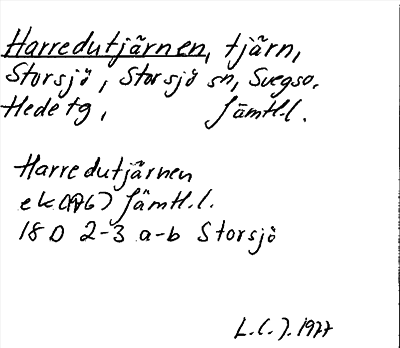 Harredutjärnen, tjärn,
Storsjö, Storsjö sn, Svegso.
Hede tg, Jämtl.l.
Harredutjärnen
ek(1976) Jämtl.l.
18D 2-3 a-b Storsjö
L.C.J. 1977